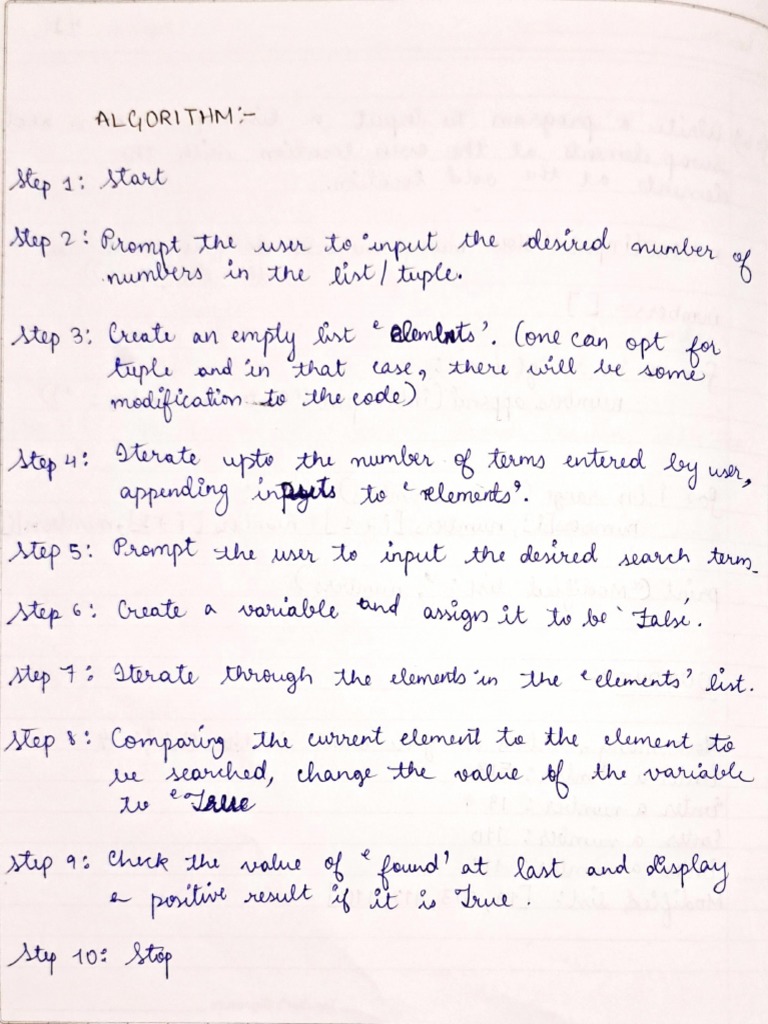 ALGORITHM:-
Step 1: Start
Step 2: Prompt the user to input the desired number of
numbers in the list/tuple.
Step 3: Create an empty list 'elements'. (one can opt for
tuple and in that case, there will be some
modification to the code)
Step 4: Iterate upto the number of terms entered by user,
appending inputs to 'elements'.
Step 5: Prompt the user to input the desired search term.
Step 6: Create a variable and assign it to be 'False'.
Step 7: Iterate through the elements in the 'elements' list.
Step 8: Comparing the current element to the element to
be searched, change the value of the variable
to 'True
Step 9: Check the value of 'found' at last and display
a positive result if it is True.
Step 10: Stop